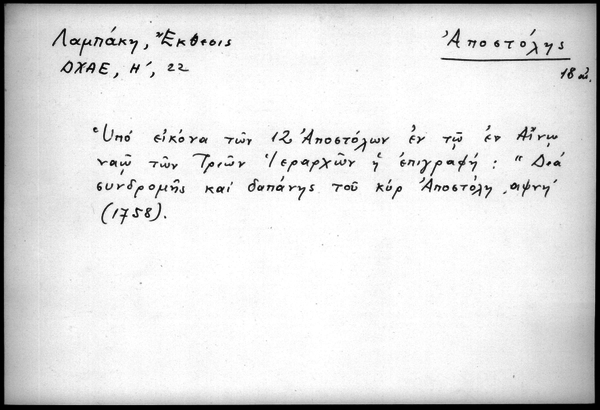 Λαμπάκη, Ἔκθεσις
ΔΧΑΕ, Η΄, 22
Ἀποστόλης
18 αἰ.
Ὑπό εἰκόνα τῶν 12 Ἀποστόλων ἐν τῷ ἐν Αἴνῳ
ναῷ τῶν Τριῶν Ἱεραρχῶν ἡ ἐπιγραφή: "Διά
συνδρομῆς καί δαπάνης τοῦ κύρ Ἀποστόλη ͵αψνή
(1758).